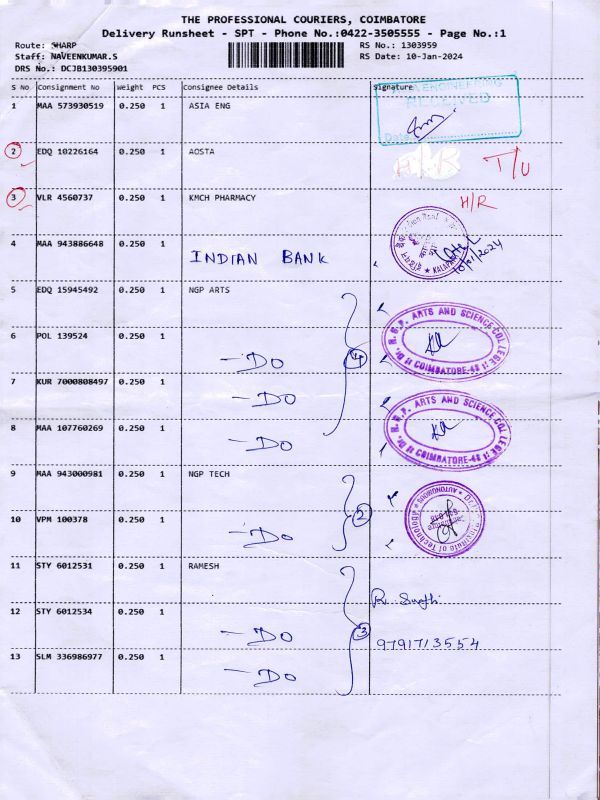 THE PROFESSIONAL COURIERS, COIMBATORE
Delivery Runsheet - SPT - Phone No.:0422-3505555 - Page No.:1
Route: SHARP
Staff: NAVEENKUMAR.S
DRS No.: DCJB130395901
RS No.: 1303959
RS Date: 10-Jan-2024
S No Consignment No Weight PCS Consignee Details Signature
1 MAA 573930519 0.250 1 ASIA ENG
ENGINEERING
RECEIVED
Date
2 EDQ 10226164 0.250 1 AOSTA H/R T/U
3 VLR 4560737 0.250 1 KMCH PHARMACY H/R
4 MAA 943886648 0.250 1 INDIAN BANK
10/01/2024
5 EDQ 15945492 0.250 1 NGP ARTS
Dr. N.G.P. ARTS AND SCIENCE COLLEGE
COIMBATORE-48
6 POL 139524 0.250 1 - DO 4
7 KUR 7000808497 0.250 1 - DO
8 MAA 107760269 0.250 1 - DO
Dr. N.G.P. ARTS AND SCIENCE COLLEGE
COIMBATORE-48
9 MAA 943000981 0.250 1 NGP TECH
Institute of Technology
AUTONOMOUS
10 VPM 100378 0.250 1 - DO 2
11 STY 6012531 0.250 1 RAMESH
12 STY 6012534 0.250 1 - DO 3
9791713554
13 SLM 336986977 0.250 1 - DO